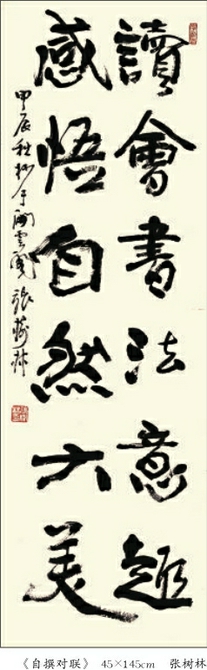 讀會書法意趣
感悟自然大美
甲辰秋杪于
張樹林
《自撰对联》 45×145cm 张树林